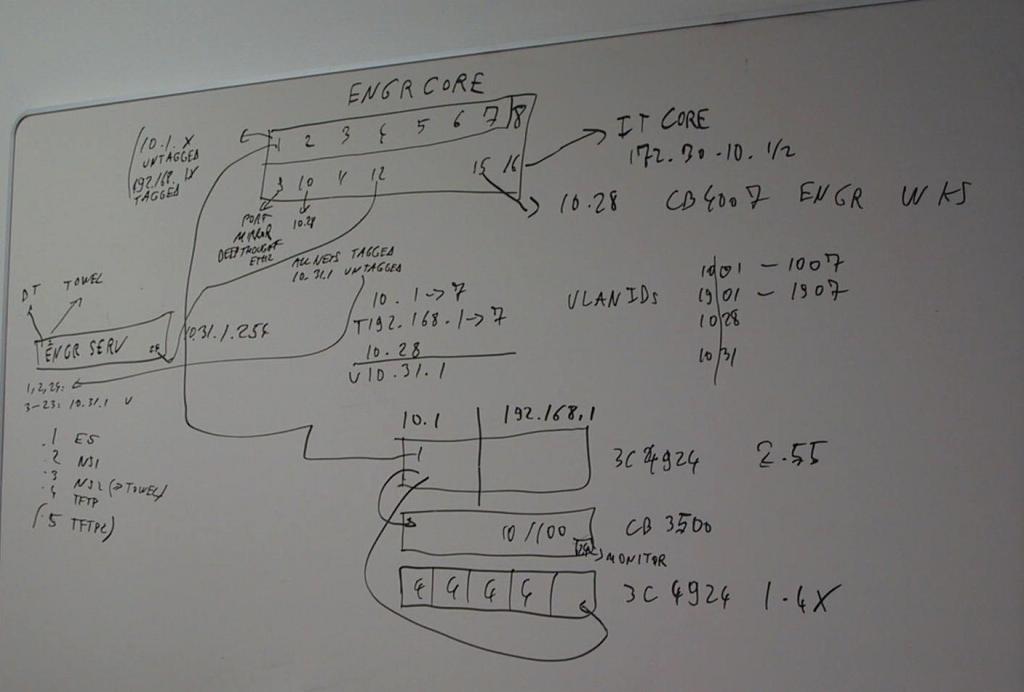 ENGR CORE
1 2 3 4 5 6 7 8
10 12 15 16
10.1.X
UNTAGGED
192.168.1X
TAGGED
PORT
MIRROR
DEEPTHOUGHT
ETH2
10.28
IT CORE
172.30.10.1/2
10.28 CB4007 ENGR WKS
ALL NETS TAGGED
10.31.1 UNTAGGED
10.1->7
T192.168.1->7
10.28
U 10.31.1
VLANIDs
1001 - 1007
1901 - 1907
1028
1031
DT TOWEL
ENGR SERV
10.31.1.254
1,2,24:
3-23: 10.31.1 U
.1 ES
.2 NS1
.3 NS2 (->TOWEL)
.4 TFTP
(.5 TFTP2)
10.1 192.168.1
1
3C4924 2.55
10/100 24
CB3500
MONITOR
4 4 4 4
3C4924 1.4X